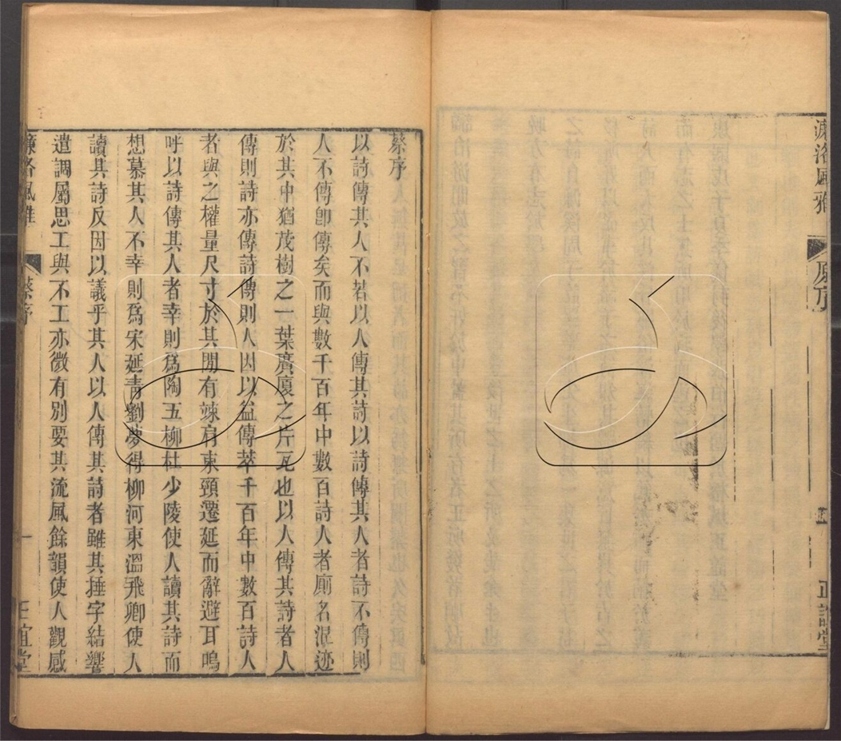 濂洛風雅
原序
正誼堂
蔡序
以詩傳其人不若以人傳其詩以詩傳其人者詩不傳則
人不傳卽傳矣而與數千百年中數百詩人者廁名混迹
於其中猶茂樹之一葉廣廈之片瓦也以人傳其詩者人
傳則詩亦傳詩傳則人因以益傳萃千百年中數百詩人
者與之權量尺寸於其間有竦肩束頸遷延而辭避耳嗚
呼以詩傳其人者幸則爲陶五柳杜少陵使人讀其詩而
想慕其人不幸則爲宋延青劉夢得柳河東溫飛卿使人
讀其詩反因以議乎其人以人傳其詩者雖其捶字結響
遣調屬思工與不工亦微有別要其流風餘韻使人觀感
濂洛風雅
蔡序
一
正誼堂